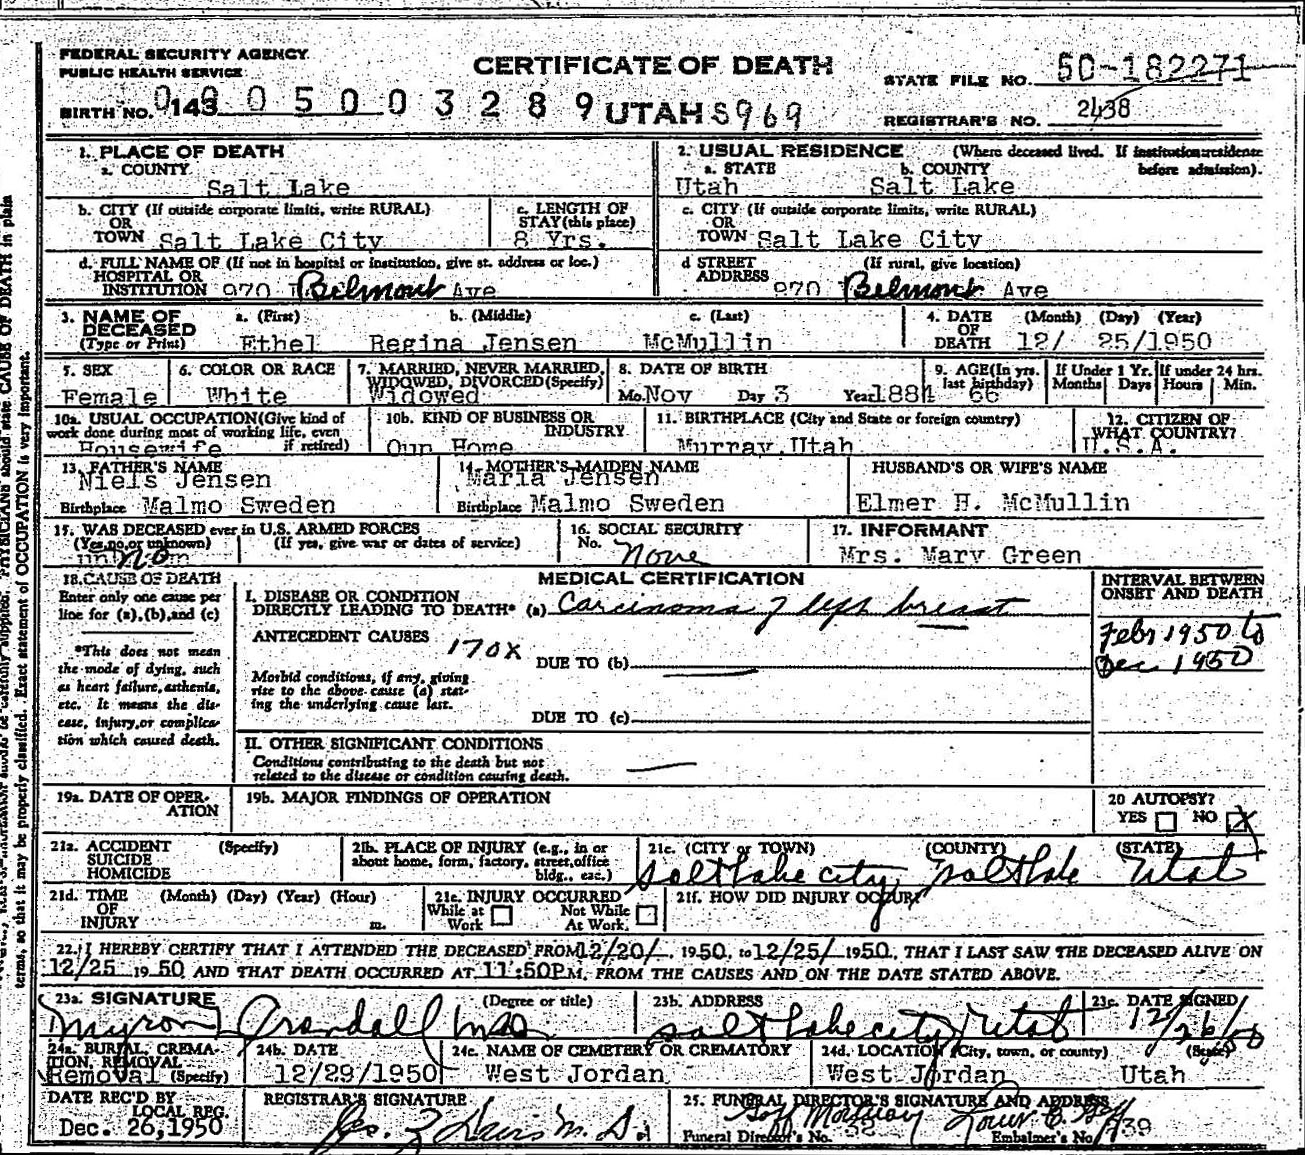 FEDERAL SECURITY AGENCY
PUBLIC HEALTH SERVICE
CERTIFICATE OF DEATH
STATE FILE NO. 50-182271
BIRTH NO. 143 0005003289 UTAH S969
REGISTRAR'S NO. 2438
1. PLACE OF DEATH
a. COUNTY
Salt Lake
2. USUAL RESIDENCE (Where deceased lived. If institution: residence before admission).
a. STATE b. COUNTY
Utah Salt Lake
b. CITY (If outside corporate limits, write RURAL)
OR
TOWN Salt Lake City
c. LENGTH OF
STAY (this place)
8 Yrs.
c. CITY (If outside corporate limits, write RURAL)
OR
TOWN Salt Lake City
d. FULL NAME OF (If not in hospital or institution, give st. address or loc.)
HOSPITAL OR
INSTITUTION 970 Belmont Ave
d STREET (If rural, give location)
ADDRESS 970 Belmont Ave
3. NAME OF DECEASED
(Type or Print)
a. (First) b. (Middle) c. (Last)
Ethel Regina Jensen McMullin
4. DATE OF DEATH (Month) (Day) (Year)
12/ 25/1950
5. SEX
Female
6. COLOR OR RACE
White
7. MARRIED, NEVER MARRIED,
WIDOWED, DIVORCED (Specify)
Widowed
8. DATE OF BIRTH
Mo. Nov Day 3 Year 1884
9. AGE (In yrs. last birthday)
66
If Under 1 Yr. If under 24 hrs.
Months Days Hours Min.
10a. USUAL OCCUPATION (Give kind of
work done during most of working life, even
if retired)
Housewife
10b. KIND OF BUSINESS OR
INDUSTRY
Own Home
11. BIRTHPLACE (City and State or foreign country)
Murray, Utah
12. CITIZEN OF
WHAT COUNTRY?
U.S.A.
13. FATHER'S NAME
Niels Jensen
Birthplace Malmo Sweden
14. MOTHER'S MAIDEN NAME
Maria Jensen
Birthplace Malmo Sweden
HUSBAND'S OR WIFE'S NAME
Elmer H. McMullin
15. WAS DECEASED ever in U.S. ARMED FORCES
(Yes, no, or unknown) (If yes, give war or dates of service)
No
16. SOCIAL SECURITY
No. None
17. INFORMANT
Mrs. Mary Green
18. CAUSE OF DEATH
Enter only one cause per
line for (a), (b), and (c)
*This does not mean
the mode of dying, such
as heart failure, asthenia,
etc. It means the dis-
ease, injury, or complica-
tion which caused death.
MEDICAL CERTIFICATION
I. DISEASE OR CONDITION
DIRECTLY LEADING TO DEATH* (a) Carcinoma of left breast
ANTECEDENT CAUSES
170X
DUE TO (b)
Morbid conditions, if any, giving
rise to the above cause (a) stat-
ing the underlying cause last.
DUE TO (c)
II. OTHER SIGNIFICANT CONDITIONS
Conditions contributing to the death but not
related to the disease or condition causing death.
INTERVAL BETWEEN
ONSET AND DEATH
Febr 1950 to
Dec 1950
19a. DATE OF OPER-
ATION
19b. MAJOR FINDINGS OF OPERATION
20 AUTOPSY?
YES NO X
21a. ACCIDENT (Specify)
SUICIDE
HOMICIDE
21b. PLACE OF INJURY (e.g., in or
about home, form, factory, street, office
bldg., eac.)
21c. (CITY or TOWN) (COUNTY) (STATE)
Salt Lake City, Salt Lake Utah
21d. TIME (Month) (Day) (Year) (Hour)
OF
INJURY m.
21e. INJURY OCCURRED
While at Work Not While At Work
21f. HOW DID INJURY OCCUR?
22. I HEREBY CERTIFY THAT I ATTENDED THE DECEASED FROM 12/20/, 1950, to 12/25/ 1950, THAT I LAST SAW THE DECEASED ALIVE ON
12/25 1950 AND THAT DEATH OCCURRED AT 11:50P M. FROM THE CAUSES AND ON THE DATE STATED ABOVE.
23a. SIGNATURE (Degree or title)
Myron Crandall MD
23b. ADDRESS
Salt Lake City, Utah
23c. DATE SIGNED
12/26/50
24a. BURIAL, CREMA-
TION, REMOVAL
Removal (Specify)
24b. DATE
12/29/1950
24c. NAME OF CEMETERY OR CREMATORY
West Jordan
24d. LOCATION (City, town, or county) (State)
West Jordan Utah
DATE REC'D BY
LOCAL REG.
Dec. 26, 1950
REGISTRAR'S SIGNATURE
25. FUNERAL DIRECTOR'S SIGNATURE AND ADDRESS
Goff Mortuary
Funeral Director's No. 32 Embalmer's No. 139